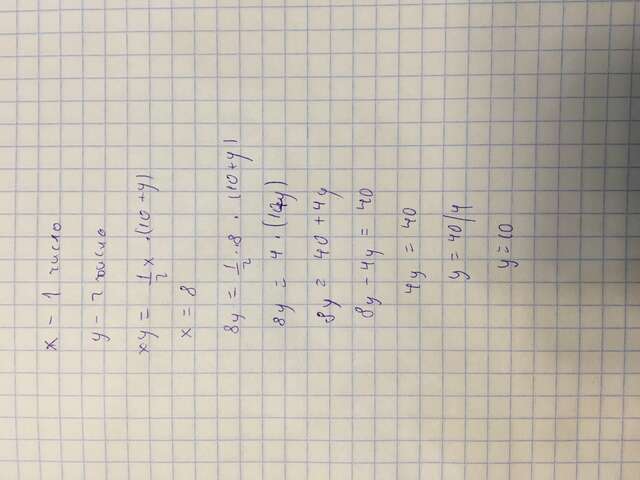 x - 1 число
y - 2 число
xy = 1/2 x · (10 + y)
x = 8
8y = 1/2 · 8 · (10 + y)
8y = 4 · (10+y)
8y = 40 + 4y
8y - 4y = 40
4y = 40
y = 40/4
y = 10